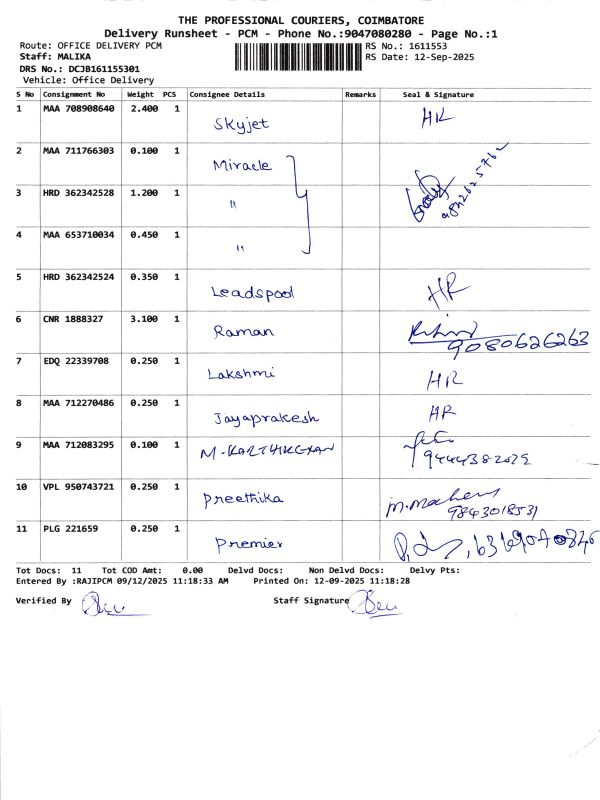 THE PROFESSIONAL COURIERS, COIMBATORE
Delivery Runsheet - PCM - Phone No.:9047080280 - Page No.:1
Route: OFFICE DELIVERY PCM RS No.: 1611553
Staff: MALIKA RS Date: 12-Sep-2025
DRS No.: DCJB161155301
Vehicle: Office Delivery
S No Consignment No Weight PCS Consignee Details Remarks Seal & Signature
1 MAA 708908640 2.400 1 Skyjet HR
2 MAA 711766303 0.100 1 Miracle
3 HRD 362342528 1.200 1 "
4 MAA 653710034 0.450 1 "
5 HRD 362342524 0.350 1 Leadspool HR
6 CNR 1888327 3.100 1 Raman 9080626263
7 EDQ 22339708 0.250 1 Lakshmi HR
8 MAA 712270486 0.250 1 Jayaprakesh HR
9 MAA 712083295 0.100 1 M-KARTHIKEYAN
10 VPL 950743721 0.250 1 Preethika
11 PLG 221659 0.250 1 Premier
Tot Docs: 11 Tot COD Amt: 0.00 Delvd Docs: Non Delvd Docs: Delvy Pts:
Entered By :RAJIPCM 09/12/2025 11:18:33 AM Printed On: 12-09-2025 11:18:28
Verified By Staff Signature